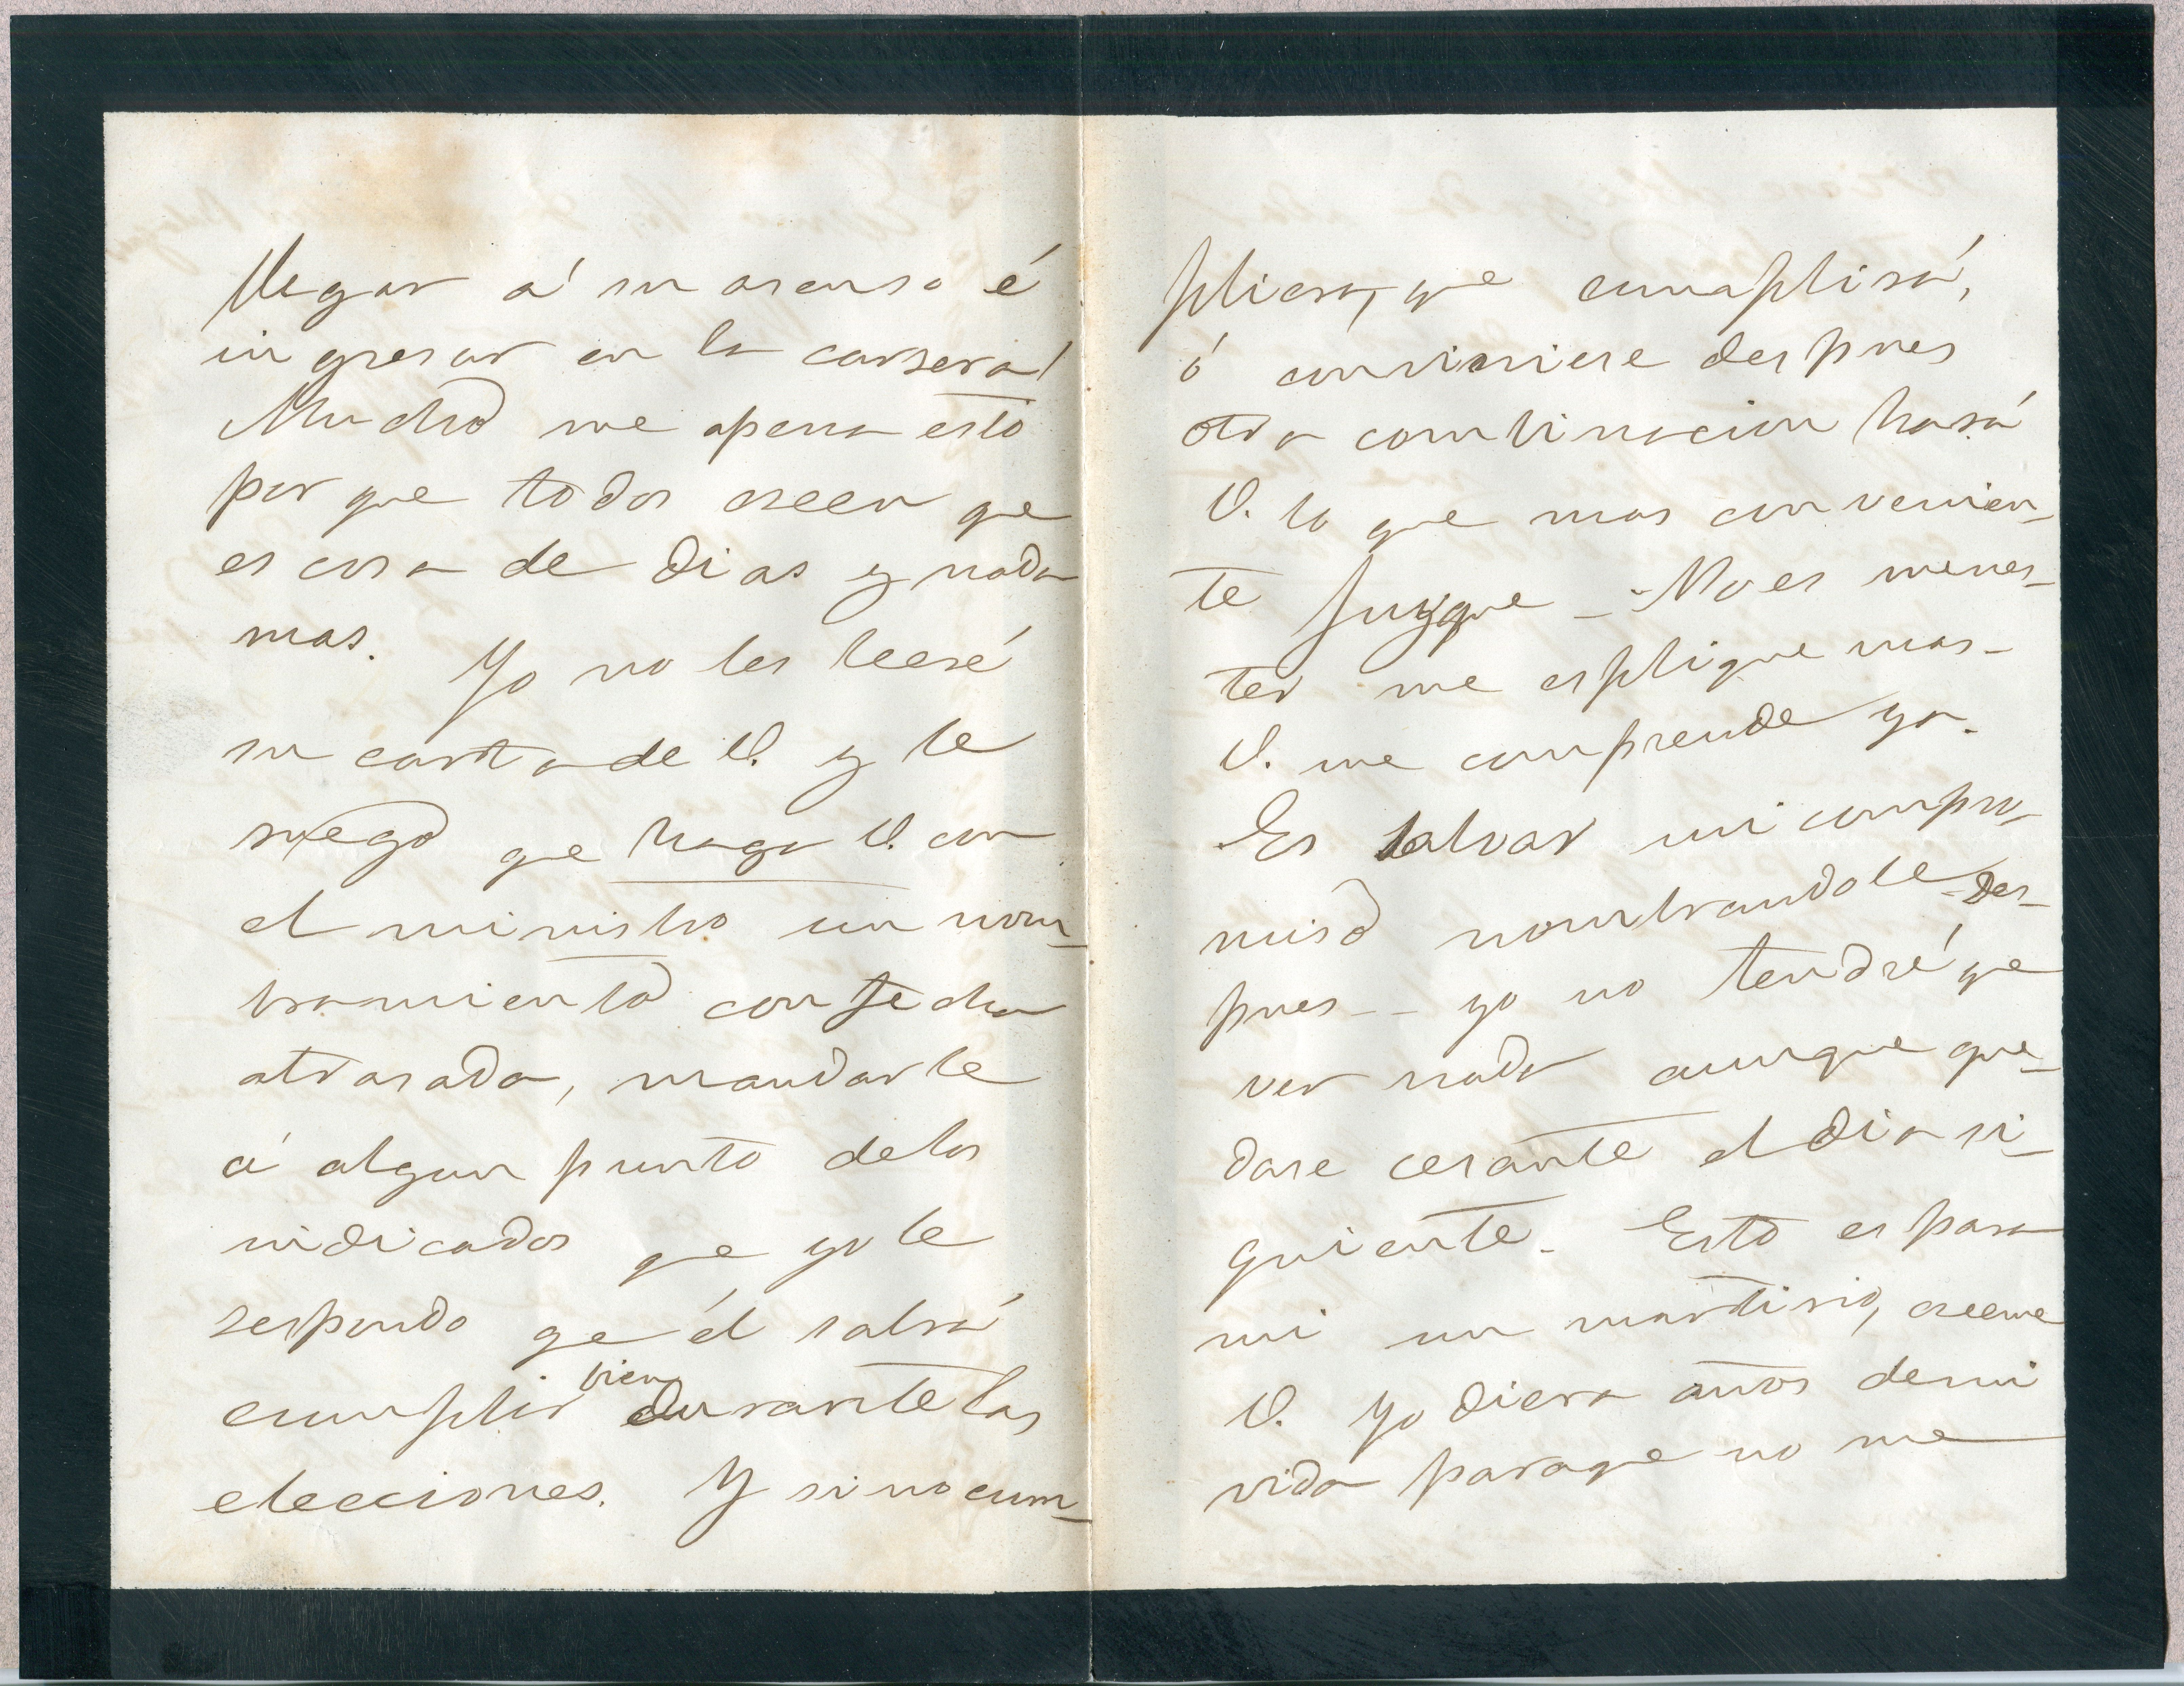 llegar á su asenso é
ingresar en la carrera!
Mucho me apena esto
por que todos creen qe
es cosa de dias y nada
mas. Yo no les leeré
su carta de V. y le
ruego qe haga V. con
el ministro un nom-
bramiento con fecha
atrasada, mandarle
á algun punto de los
indicados qe yo le
respondo qe él sabrá
cumplir bien durante las
elecciones. Y si no cum-
pliera, que cumplirá,
ó conviniere despues
otra combinacion hará
V. lo que mas convenien-
te juzgue - No es menes-
ter me esplique mas -
V. me comprende ya.
Es salvar mi compro-
miso nombrandole - des-
pues - - yo no tendré qe
ver nada aunque que-
dase cesante el dia si-
guiente. Esto es para
mi un martirio, creeme
V. Yo diera años de mi
vida para qe no me